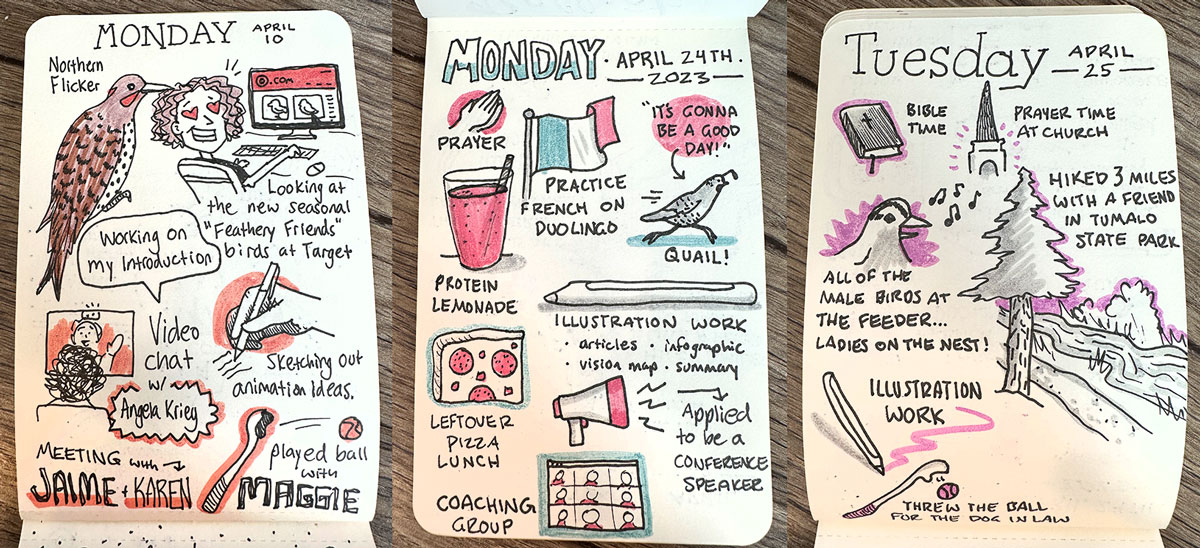 MONDAY APRIL 10
Northern
Flicker
©.com
Looking at
the new seasonal
"Feathery Friends"
birds at Target
Working on
my Introduction
Video
chat
w/
Angela Krieg
Sketching out
animation ideas.
MEETING with
JAIME + KAREN
played ball
with
MAGGIE
MONDAY · APRIL 24TH ·
2023
PRAYER
PRACTICE
FRENCH ON
DUOLINGO
"IT'S GONNA
BE A GOOD
DAY!"
QUAIL!
PROTEIN
LEMONADE
ILLUSTRATION WORK
• articles • infographic
• vision map • summary
LEFTOVER
PIZZA
LUNCH
Applied
to be a
CONFERENCE
SPEAKER
COACHING
GROUP
Tuesday APRIL
25
BIBLE
TIME
PRAYER TIME
AT CHURCH
HIKED 3 MILES
WITH A FRIEND
IN TUMALO
STATE PARK
ALL OF THE
MALE BIRDS AT
THE FEEDER...
LADIES ON THE NEST!
ILLUSTRATION
WORK
THREW THE BALL
FOR THE DOG IN LAW